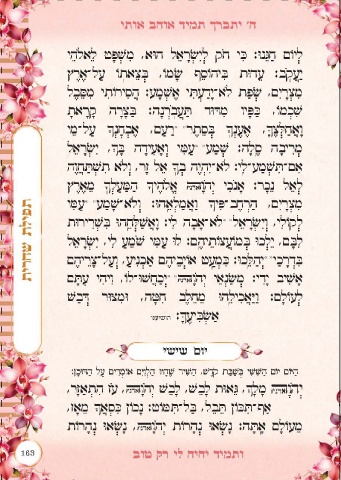 ה' יתברך תמיד אוהב אותי
לְיוֹם חַגֵּנוּ: כִּי חֹק לְיִשְׂרָאֵל הוּא, מִשְׁפָּט לֵאלֹהֵי
יַעֲקֹב: עֵדוּת בִּיהוֹסֵף שָׂמוֹ, בְּצֵאתוֹ עַל־אֶרֶץ
מִצְרָיִם, שְׂפַת לֹא־יָדַעְתִּי אֶשְׁמָע: הֲסִירוֹתִי מִסֵּבֶל
שִׁכְמוֹ, כַּפָּיו מִדּוּד תַּעֲבֹרְנָה: בַּצָּרָה קָרָאתָ
וָאֲחַלְּצֶךָּ, אֶעֶנְךָ בְּסֵתֶר רַעַם, אֶבְחָנְךָ עַל־מֵי
מְרִיבָה סֶלָה: שְׁמַע עַמִּי וְאָעִידָה בָּךְ, יִשְׂרָאֵל
אִם־תִּשְׁמַע־לִי: לֹא־יִהְיֶה בְךָ אֵל זָר, וְלֹא תִשְׁתַּחֲוֶה
לְאֵל נֵכָר: אָנֹכִי יְהֹוָה אֱלֹהֶיךָ הַמַּעַלְךָ מֵאֶרֶץ
מִצְרָיִם, הַרְחֶב־פִּיךָ וַאֲמַלְאֵהוּ: וְלֹא־שָׁמַע עַמִּי
לְקוֹלִי, וְיִשְׂרָאֵל לֹא־אָבָה לִי: וָאֲשַׁלְּחֵהוּ בִּשְׁרִירוּת
לִבָּם, יֵלְכוּ בְּמוֹעֲצוֹתֵיהֶם: לוּ עַמִּי שֹׁמֵעַ לִי, יִשְׂרָאֵל
בִּדְרָכַי יְהַלֵּכוּ: כִּמְעַט אוֹיְבֵיהֶם אַכְנִיעַ, וְעַל־צָרֵיהֶם
אָשִׁיב יָדִי: מְשַׂנְאֵי יְהֹוָה יְכַחֲשׁוּ־לוֹ, וִיהִי עִתָּם
לְעוֹלָם: וַיַּאֲכִילֵהוּ מֵחֵלֶב חִטָּה, וּמִצּוּר דְּבַשׁ
אַשְׂבִּיעֶךָ: הושיענו
יום שישי
הַיּוֹם יוֹם הַשִּׁשִּׁי בְּשַׁבַּת קֹדֶשׁ, הַשִּׁיר שֶׁהָיוּ הַלְוִיִּם אוֹמְרִים עַל הַדּוּכָן:
יְהֹוָה מָלָךְ, גֵּאוּת לָבֵשׁ, לָבֵשׁ יְהֹוָה, עֹז הִתְאַזָּר,
אַף־תִּכּוֹן תֵּבֵל, בַּל־תִּמּוֹט: נָכוֹן כִּסְאֲךָ מֵאָז,
מֵעוֹלָם אָתָּה: נָשְׂאוּ נְהָרוֹת יְהֹוָה, נָשְׂאוּ נְהָרוֹת
תפילת שחרית
163
ותמיד יהיה לי רק טוב